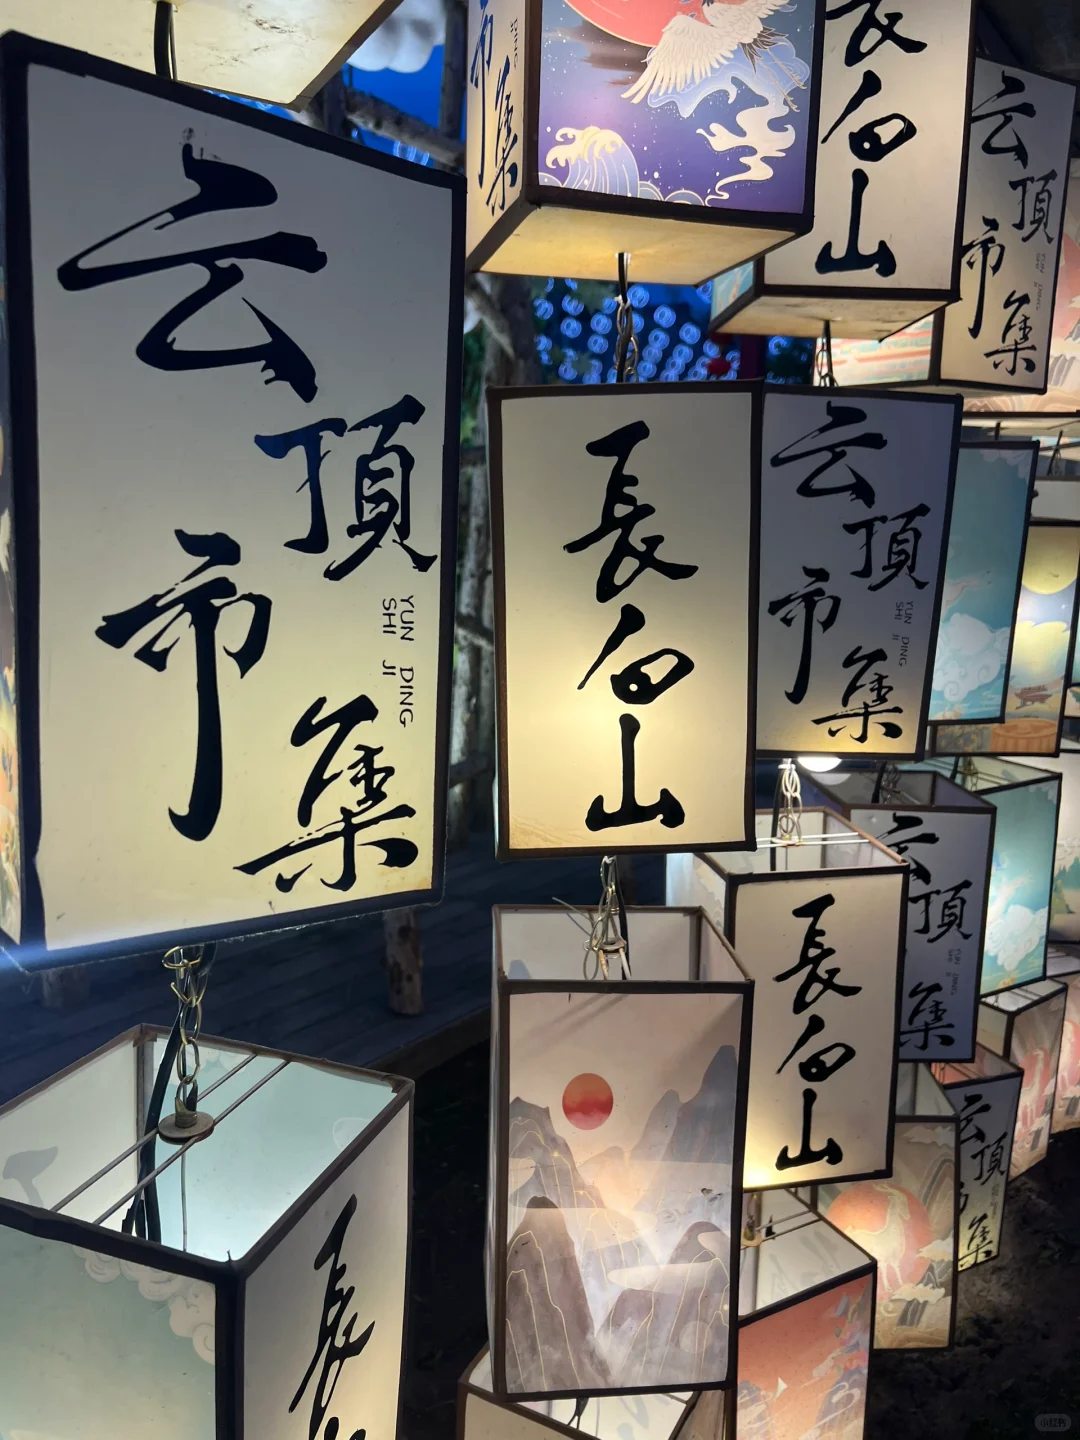 云頂市集
YUN DING
SHI JI
市集
DING
長白山
云頂市集
YUN DING
SHI JI
長白山
云頂市集
YUN DING
SHI JI
長白山
云頂集
云頂市集
長
小红书